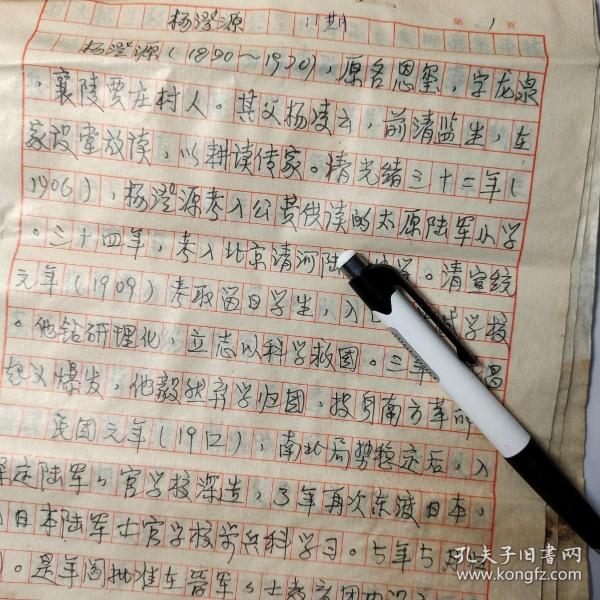 杨澄源 第1页
杨澄源(1890～1970),原名恩玺,字龙泉
,襄陵贾庄村人。其父杨凌云,前清监生,在
家设堂放读,以耕读传家。清光绪三十二年(
1906),杨澄源考入公费供读的太原陆军小学
。三十四年,考入北京清河陆 中学。清宣统
元年(1909)考取留日学生,入 学校
。他钻研理化,立志以科学救国。三年 昌
起义爆发,他毅然弃学归国,投身南方革命
民国元年(1912),南北局势稳定后,入
保定陆军 官学校深造,3年再次东渡日本,
日本陆军士官学校 兵科学习。5年5月
。是年阎批准在晋军
孔夫子旧书网
www.kongfz.com